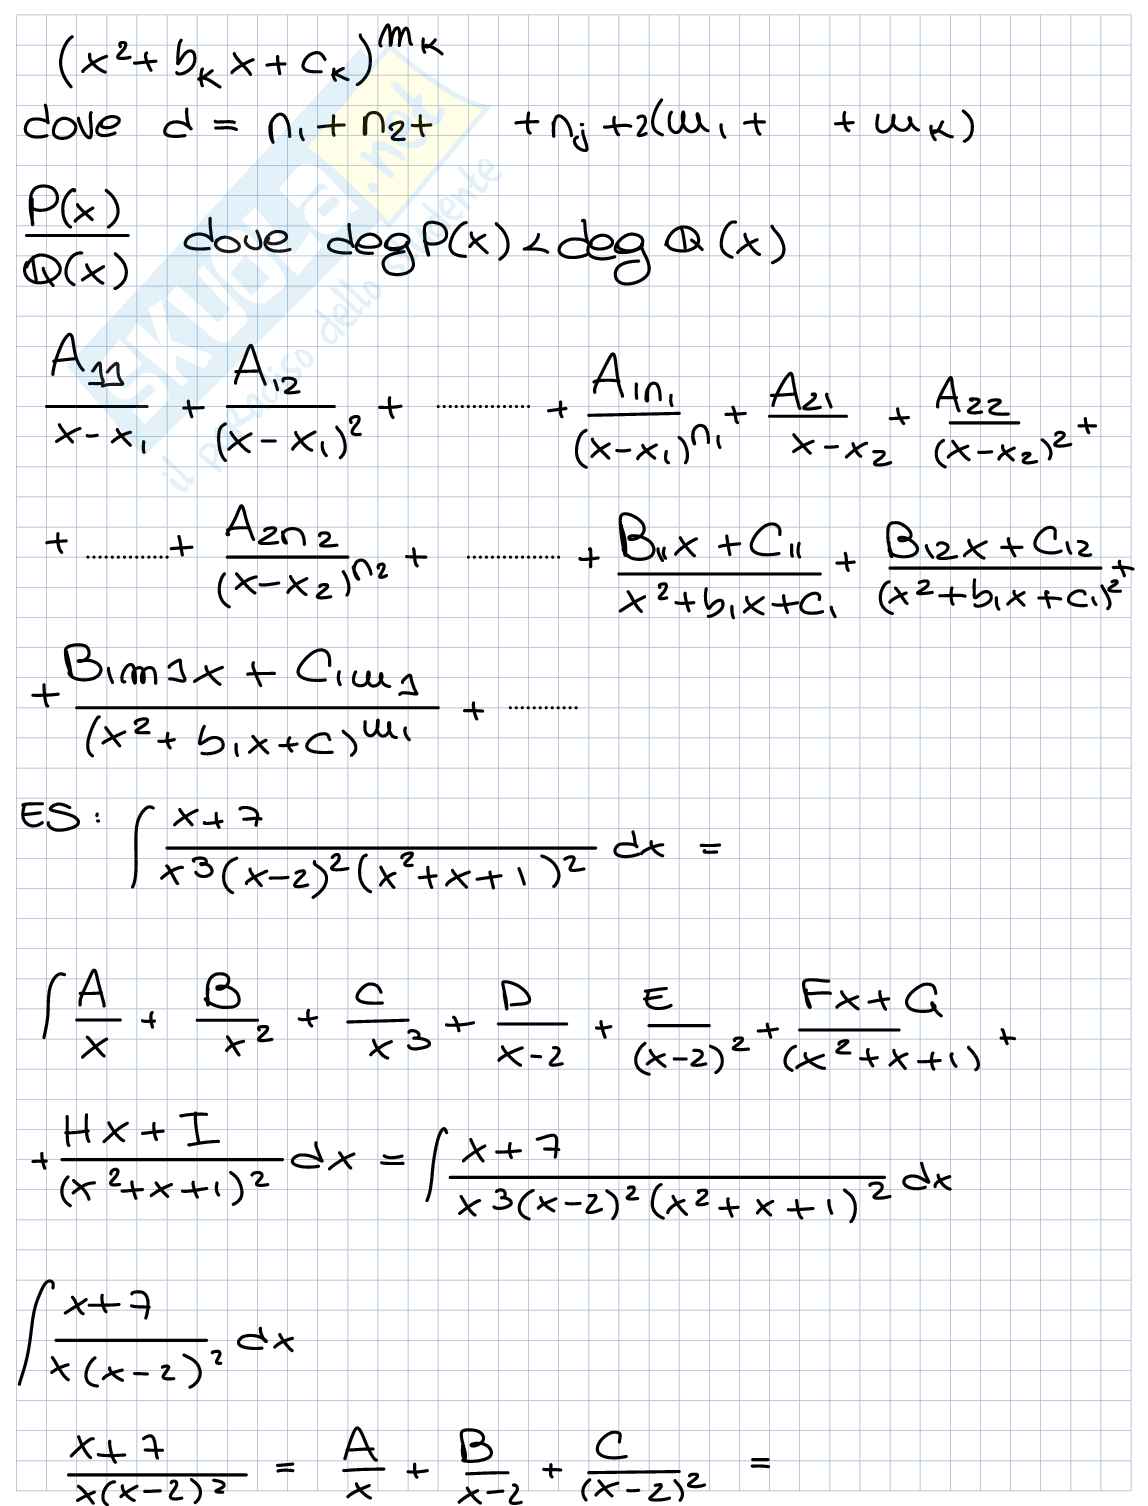 (x² + b_K x + c_K)^m_K
dove d = n₁ + n₂ + + n_j + 2(m₁ + + m_K)
P(x)/Q(x) dove deg P(x) < deg Q(x)
A₁₁/(x-x₁) + A₁₂/(x-x₁)² + .............. + A₁n₁/(x-x₁)^n₁ + A₂₁/(x-x₂) + A₂₂/(x-x₂)² +
+ ............ + A₂n₂/(x-x₂)^n₂ + .............. + (B₁₁x + C₁₁)/(x²+b₁x+c₁) + (B₁₂x + C₁₂)/(x²+b₁x+c₁)² +
+ (B₁m₁x + C₁m₁)/(x² + b₁x + c)^m₁ + ...........
ES: ∫ (x+7)/(x³(x-2)²(x²+x+1)²) dx =
∫ A/x + B/x² + C/x³ + D/(x-2) + E/(x-2)² + (Fx+G)/(x²+x+1) +
+ (Hx+I)/(x²+x+1)² dx = ∫ (x+7)/(x³(x-2)²(x²+x+1)²) dx
∫ (x+7)/(x(x-2)²) dx
(x+7)/(x(x-2)²) = A/x + B/(x-2) + C/(x-2)² =
SKUOLA.net
il paradiso dello studente